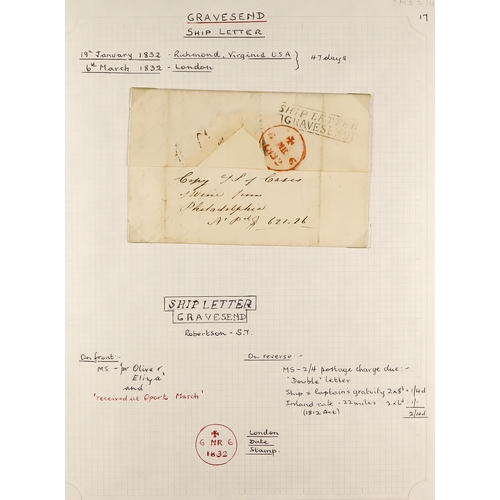 GRAVESEND
SHIP LETTER
17
19th January 1832 - Richmond, Virginia USA
6th March 1832 - London
47 days
SHIP LETTER
GRAVESEND
6 MR 6
1832
Copy of Cases
of Wine from
Philadelphia
621.26
SHIP LETTER
GRAVESEND
Robertson - S.7.
On front:-
MS - 'pr Oliver
Eliza'
and
'received at Oport March'
On reverse:-
MS - 2/4 postage charge due:-
'Double' letter
Ship & Captain's gratuity 2 x 8d = 1/4d
Inland rate - 22 miles 2 x 6d = 1/-
(1812 Act)
2/4d
6 MR 6
1832
London
Date
Stamp.